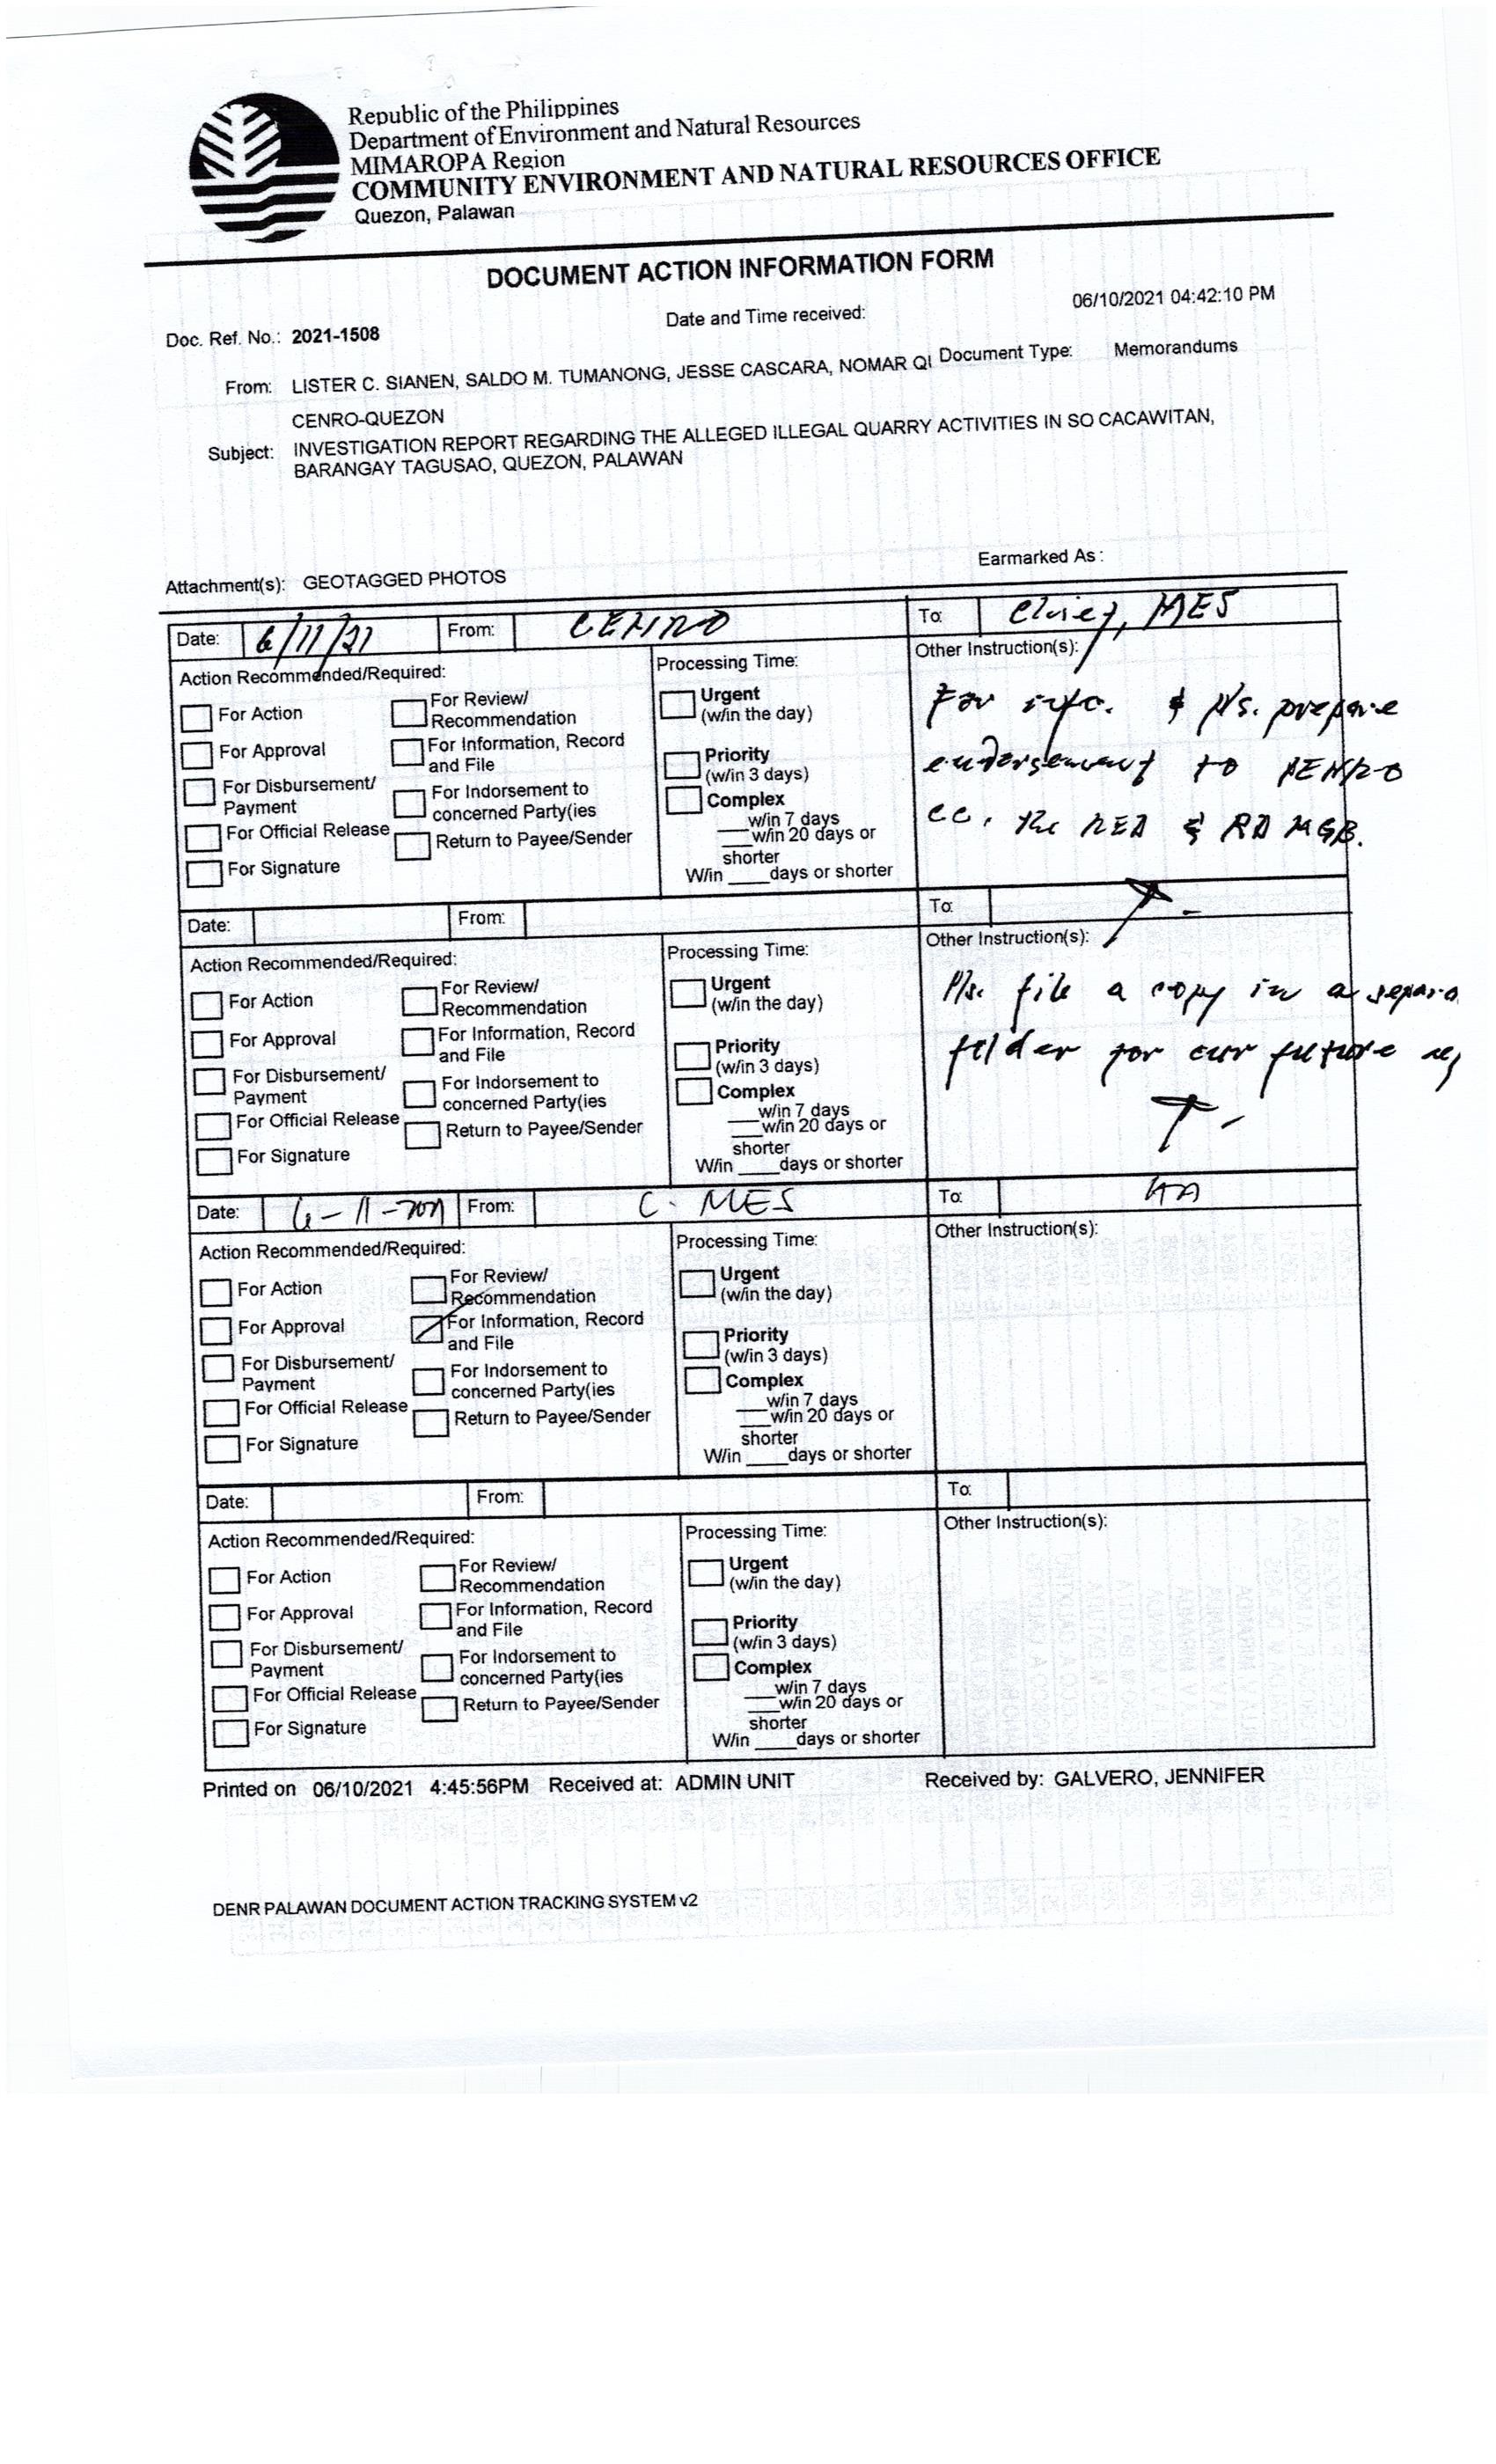 Republic of the Philippines
Department of Environment and Natural Resources
MIMAROPA Region
COMMUNITY ENVIRONMENT AND NATURAL RESOURCES OFFICE
Quezon, Palawan
DOCUMENT ACTION INFORMATION FORM
Doc. Ref. No.: 2021-1508 Date and Time received: 06/10/2021 04:42:10 PM
From: LISTER C. SIANEN, SALDO M. TUMANONG, JESSE CASCARA, NOMAR QI Document Type: Memorandums
CENRO-QUEZON
Subject: INVESTIGATION REPORT REGARDING THE ALLEGED ILLEGAL QUARRY ACTIVITIES IN SO CACAWITAN,
BARANGAY TAGUSAO, QUEZON, PALAWAN
Attachment(s): GEOTAGGED PHOTOS Earmarked As :
Date: 6/11/21 From: CENRO To: Chief, MES
Action Recommended/Required: Processing Time: Other Instruction(s):
For Action For Review/ Urgent For info. & pls. prepare
Recommendation (w/in the day)
For Approval For Information, Record Priority endorsement to PENRO
and File (w/in 3 days)
For Disbursement/ For Indorsement to Complex cc. the RED & RD MGB.
Payment concerned Party(ies w/in 7 days
For Official Release Return to Payee/Sender w/in 20 days or
shorter
For Signature W/in ____days or shorter
Date: From: To:
Action Recommended/Required: Processing Time: Other Instruction(s):
For Action For Review/ Urgent Pls. file a copy in a separa
Recommendation (w/in the day)
For Approval For Information, Record Priority folder for our future
and File (w/in 3 days)
For Disbursement/ For Indorsement to Complex
Payment concerned Party(ies w/in 7 days
For Official Release Return to Payee/Sender w/in 20 days or
shorter
For Signature W/in ____days or shorter
Date: 6-11-2021 From: C. MES To:
Action Recommended/Required: Processing Time: Other Instruction(s):
For Action For Review/ Urgent
Recommendation (w/in the day)
For Approval For Information, Record Priority
and File (w/in 3 days)
For Disbursement/ For Indorsement to Complex
Payment concerned Party(ies w/in 7 days
For Official Release Return to Payee/Sender w/in 20 days or
shorter
For Signature W/in ____days or shorter
Date: From: To:
Action Recommended/Required: Processing Time: Other Instruction(s):
For Action For Review/ Urgent
Recommendation (w/in the day)
For Approval For Information, Record Priority
and File (w/in 3 days)
For Disbursement/ For Indorsement to Complex
Payment concerned Party(ies w/in 7 days
For Official Release Return to Payee/Sender w/in 20 days or
shorter
For Signature W/in ____days or shorter
Printed on 06/10/2021 4:45:56PM Received at: ADMIN UNIT Received by: GALVERO, JENNIFER
DENR PALAWAN DOCUMENT ACTION TRACKING SYSTEM v2